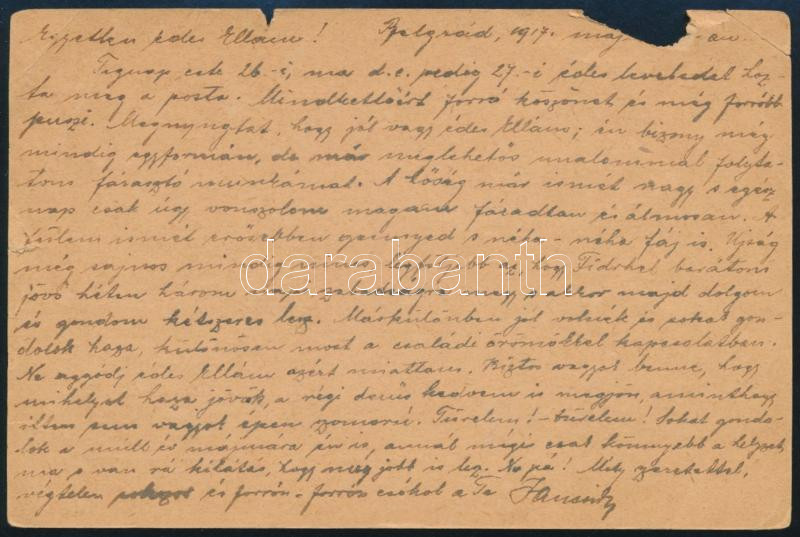 Egyetlen édes Ellám! Belgrád, 1917. máj -án
Tegnap este 26-i, ma d.e. pedig 27-i édes leveledet hoz-
ta meg a posta. Mindkettőért forró köszönet és még forróbb
puszi. Megnyugtat, hogy jól vagy édes Ellám; én bizony még
mindig egyformán, de már meglehetős unalommal folyta-
tom fárasztó munkámat. A hőség már ismét nagy s egész
nap csak úgy vonszolom magam fáradtan és álmosan. A
fülem ismét erősebben gennyed s néha-néha fáj is. Ujság
még sajnos mindig hogy barátom
jövő héten három nap szabadságra megy s akkor majd dolgom
és gondom kétszeres lesz. Máskülönben jól volnék és sokat gon-
dolok haza, különösen most a családi örömökkel kapcsolatban.
Ne aggódj édes Ellám azért miattam. Biztos vagyok benne, hogy
mihelyst haza jövök, a régi derűs kedvem is megjön, aminthogy
ittem sem vagyok éppen szomorú. Türelem! - türelem! Sokat gondo-
lok a múlt és májunára én is, annál mégis csak könnyebb a helyzet,
ma s van rá kilátás, hogy még jobb is lesz. Na pá! Mély szeretettel,
végtelen sokszor és forrón-forrón csókol a Te Jancsid
darabanth